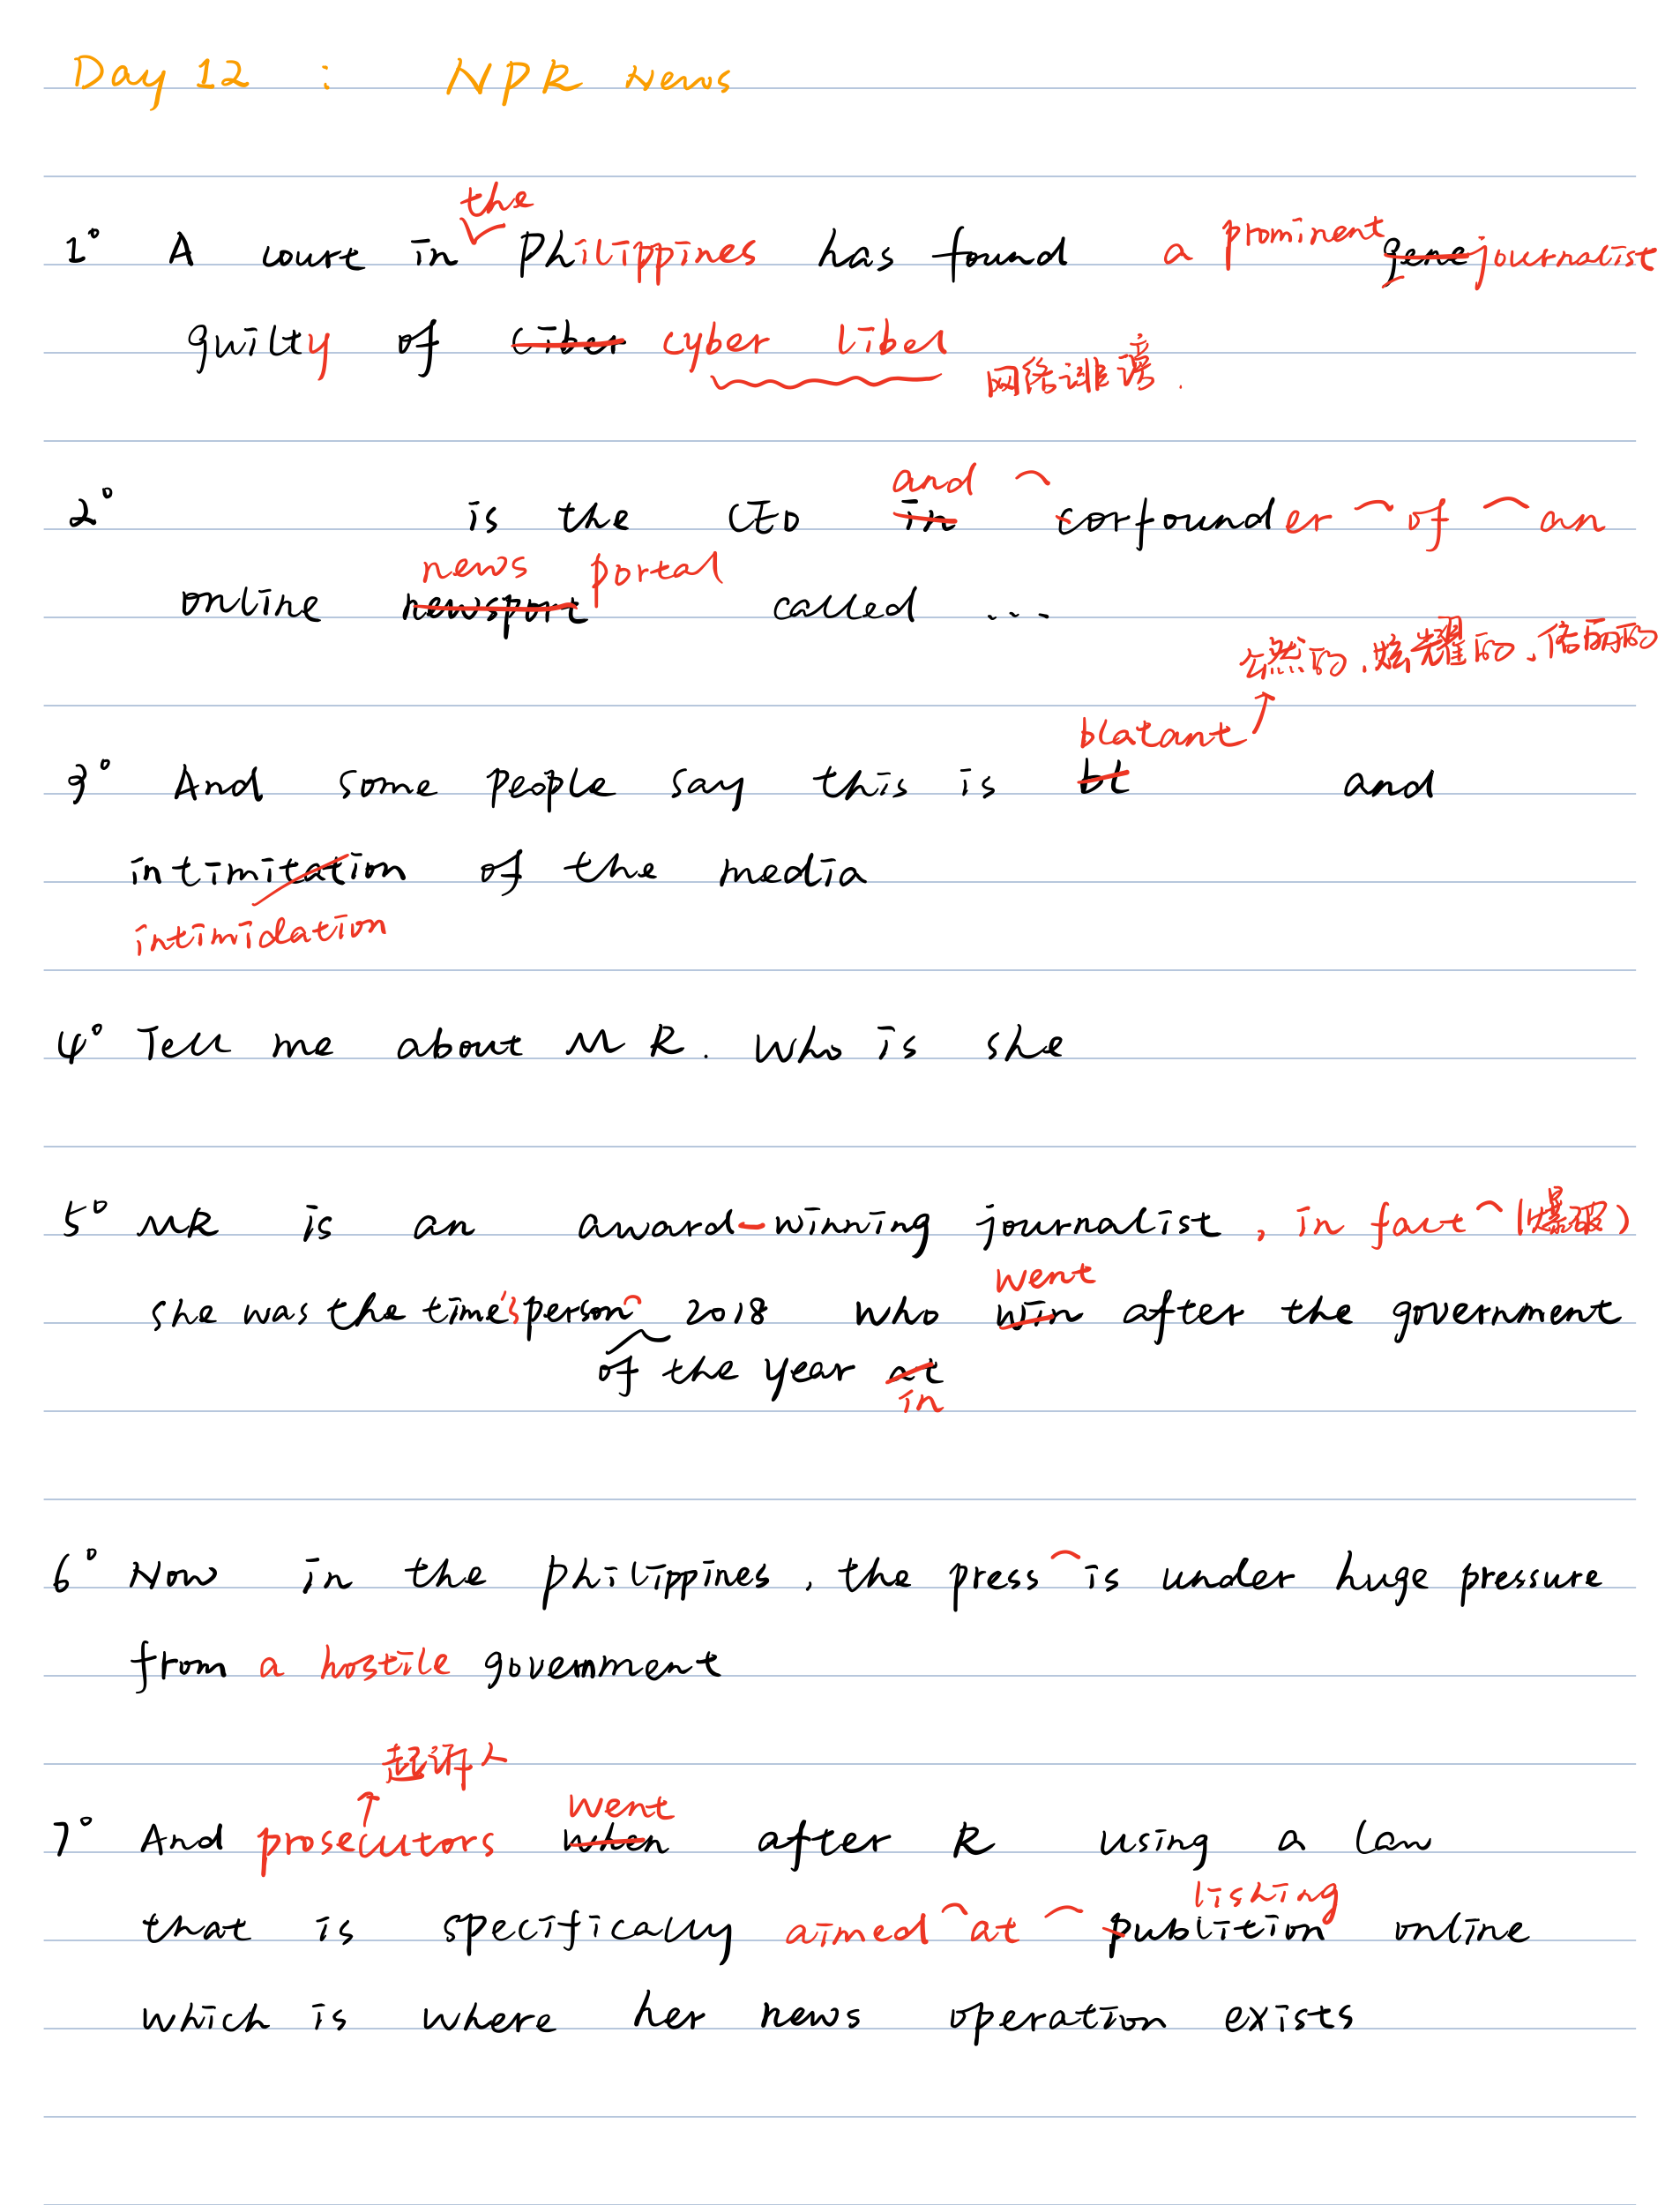 Day 12 : NPR News
the
1° A court in Philippines has found a prominent gene journalist
guilty of ciber cyber libel 网络诽谤.
and
2° is the CEO in corfounder of an
news portal
online newsport called ...
公然的、炫耀的、俗丽的
blatant
3° And some people say this is bt and
intimitation of the media
intimidation
4° Tell me about M R. Who is she
5° MR is an award-winning journalist, in fact (爆破)
went
she was the time's person 2018 who win after the government
of the year at
in
6° Now in the philippines, the press is under huge pressure
from a hostile government
起诉人
went
7° And prosecutors when after R using a law
lishing
that is specifically aimed at publition online
which is where her news operation exists